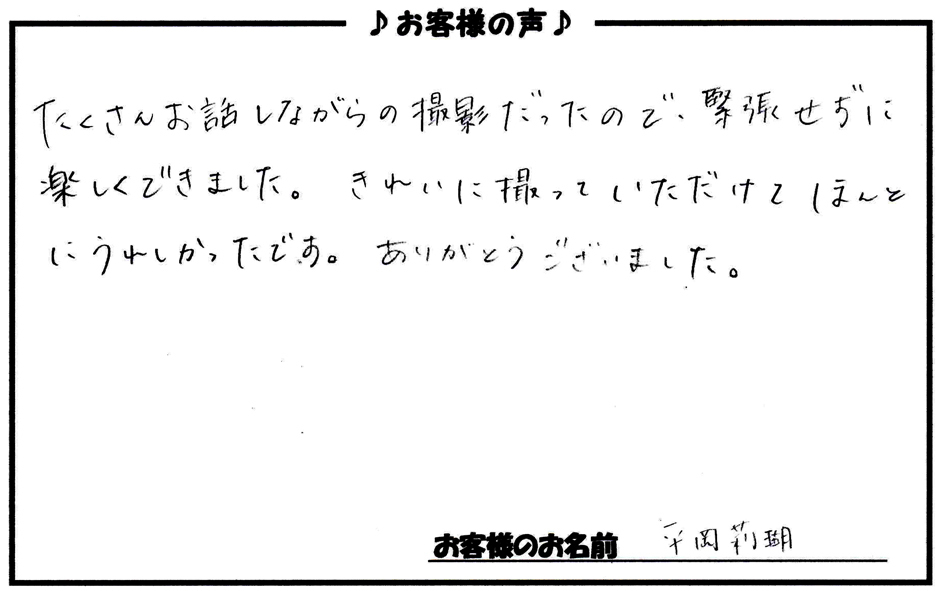 ♪お客様の声♪
たくさんお話しながらの撮影だったので、緊張せずに
楽しくできました。 きれいに撮っていただけてほんと
にうれしかったです。 ありがとうございました。
お客様のお名前 平岡莉瑚